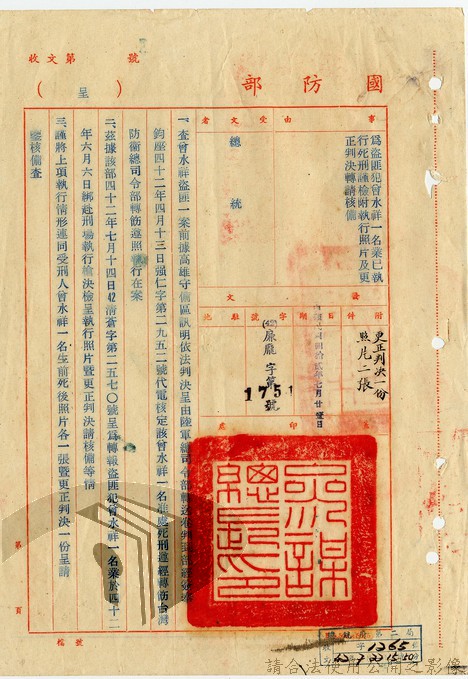 國防部
(呈)
收文第 號
事由
為盜匪犯曾水祥一名業已執
行死刑謹檢附執行照片及更
正判決轉請核備
受文者
總統
附件
更正判決一份
照片二張
發文
日期
字號
駐地
(42)廉龐字第1751號
一、查曾水祥盜匪一案前據高雄守備區訊明依法判決呈由陸軍總司令部轉
鈞座四十二年四月十三日强仁字第二九五二號代電核定該曾水祥一名准處死刑遵經轉飭台灣
防衛總司令部轉飭遵照執行在案
二、茲據該部四十二年七月十四日42清蒼字第二五七〇號呈為轉報盜匪犯曾水祥一名業於四十二
年六月六日綁赴刑場執行槍決檢呈執行照片暨更正判決請核備等情
三、謹將上項執行情形連同受刑人曾水祥一名生前死後照片各一張暨更正判決一份呈請
核備查
第 頁
檔號
參謀總長之印
總統府第二局
1265
42 7 22 15 50
請合法使用公開之影像